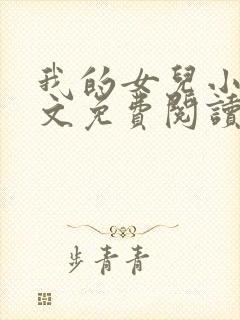 我的女兒小
文免費閱讀
步青青